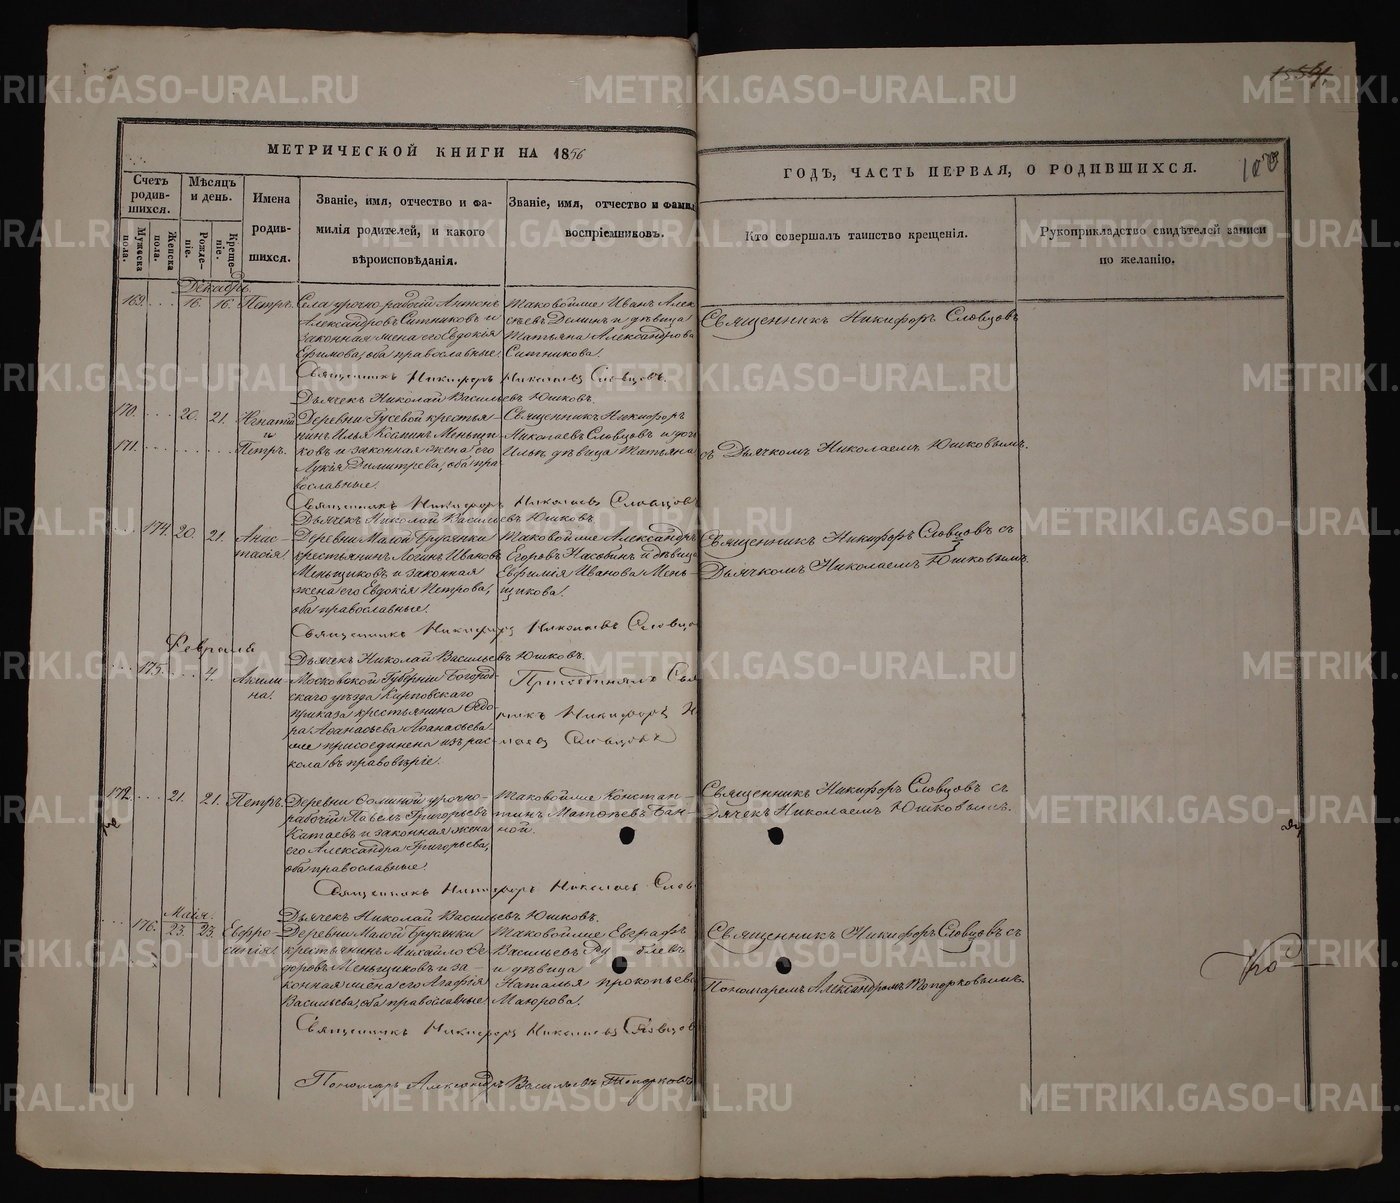 МЕТРИЧЕСКОЙ КНИГИ НА 1856
ГОДЪ, ЧАСТЬ ПЕРВАЯ, О РОДИВШИХСЯ.
Счетъ родив- шихся.
Мѣсяцъ и день.
Имена родив- шихся.
Званіе, имя, отчество и фа-
милія родителей, и какого
вѣроисповѣданія.
Званіе, имя, отчество и фамил
воспріемниковъ.
Кто совершалъ таинство крещенія.
Рукоприкладство свидѣтелей записи
по желанію.
Мужеска пола.
Женска пола.
Рожде- ніе.
Креще- ніе.
Декабрь.
169. 16. 16. Петръ. Села урочно-рабочій Антонъ
Александровъ Ситниковъ и
законная жена его Евдокія
Ефимова, оба православные.
Таковойже Иванъ Алек
сѣевъ Деминъ и дѣвица
Татьяна Александрова
Ситникова.
Священникъ Никифоръ Словцовъ
Священникъ Никифоръ Николаевъ Словцовъ.
Дьячекъ Николай Васильевъ Юшковъ.
170. 20. 21. Игнатій
и
171. Петръ.
Деревни Гусевой крестья-
нинъ Илья Меньщи-
ковъ и законная жена его
Лукія Димитрева, оба пра
вославные.
Священникъ Никифоръ
Николаевъ Словцовъ и дочь
Ильи дѣвица Татьяна
съ Дьячкомъ Николаемъ Юшковымъ.
Священникъ Никифоръ Николаевъ Словцовъ
Дьячекъ Николай Васильевъ Юшковъ
174. 20. 21. Анас-
тасія.
Деревни Малой Брусянки
крестьянинъ Логинъ Ивановъ
Меньщиковъ и законная
жена его Евдокія Петрова,
оба православные.
Таковойже Александръ
Егоровъ и дѣвица
Евфимія Иванова Мень-
щикова.
Священникъ Никифоръ Словцовъ съ
Дьячкомъ Николаемъ Юшковымъ.
Священникъ Никифоръ Николаевъ Словцо
Февраля
Дьячекъ Николай Васильевъ Юшковъ.
175. 4. Акили-
на.
Московской Губерніи Богород-
скаго уѣзда Карповскаго
приказа крестьянина Ѳедо
ра Аѳанасьева Аѳанасьева
присоединена изъ рас-
кола въ правовѣріе.
Присоединялъ Свя
никъ Никифоръ Н
лаевъ Словцовъ
172. 21. 21. Петръ. Деревни Ѳоминой урочно-
рабочій Павелъ Григорьевъ
Китаевъ и законная жена
его Александра Григорьева,
оба православные.
Таковойже Констан-
тинъ Матѳеевъ Бан-
ной.
Священникъ Никифоръ Словцовъ съ
Дячекъ Николаемъ Юшковымъ.
Священникъ Никифоръ Николаевъ Слов
Дьячекъ Николай Васильевъ Юшковъ.
Маія.
176. 23. 23. Евфро-
синія.
Деревни Малой Брусянки
крестьянинъ Михайло Ѳе
доровъ Меньщиковъ и за-
конная жена его Агафія
Васильева, оба православные
Таковойже Евграфъ
Васильевъ
и дѣвица
Наталья Прокопьева
Маюрова.
Священникъ Никифоръ Словцовъ съ
Пономаремъ Александромъ Топорковымъ.
Священникъ Никифоръ Николаевъ Словцов
Пономарь Александръ Васильевъ Топорковъ
METRIKI.GASO-URAL.RU